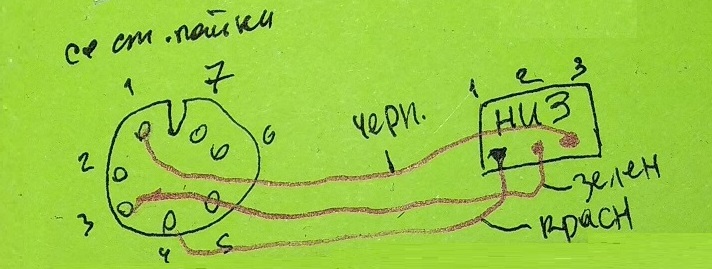 со ст. пайки
1 7
2 6
3
4 5
черн.
1 2 3
НИЗ
зелен
красн